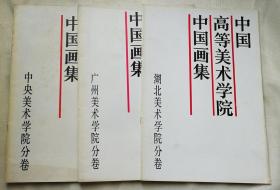 中国画集
中央美术学院分卷
中国画集
广州美术学院分卷
中国
高等美术学院
中国画集
湖北美术学院分卷